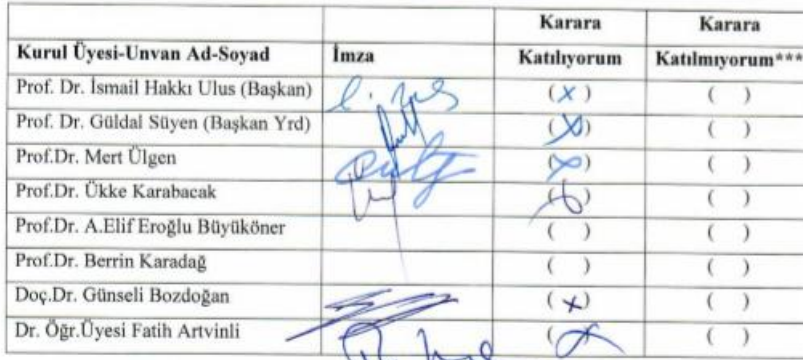 Karara Karara
Kurul Üyesi-Unvan Ad-Soyad İmza Katılıyorum Katılmıyorum***
Prof. Dr. İsmail Hakkı Ulus (Başkan) (x) ( )
Prof. Dr. Güldal Süyen (Başkan Yrd) (x) ( )
Prof.Dr. Mert Ülgen (x) ( )
Prof.Dr. Ükke Karabacak (x) ( )
Prof.Dr. A.Elif Eroğlu Büyüköner ( ) ( )
Prof.Dr. Berrin Karadağ ( ) ( )
Doç.Dr. Günseli Bozdoğan (x) ( )
Dr. Öğr.Üyesi Fatih Artvinli (x) ( )